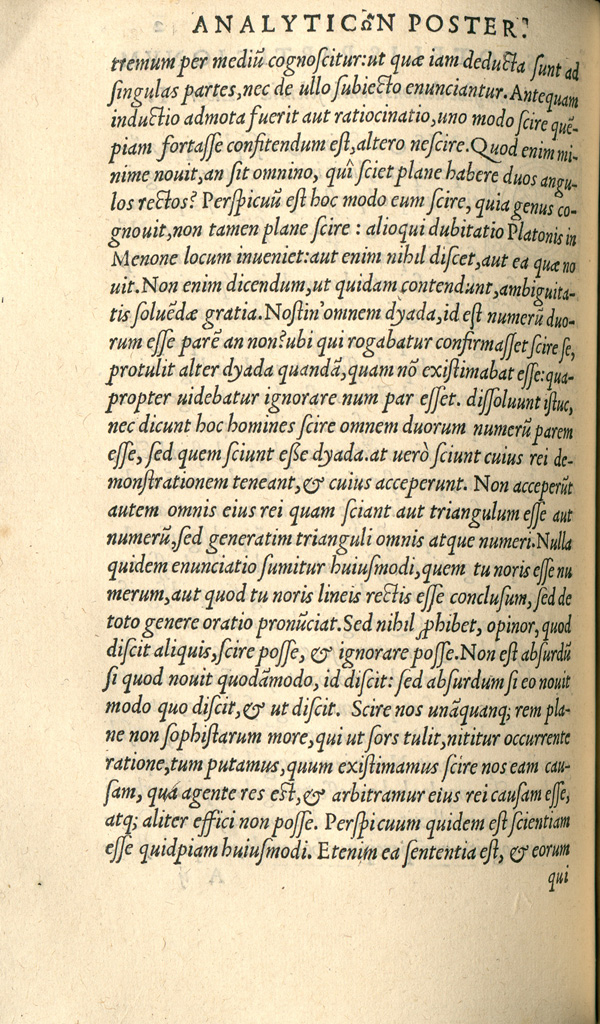 ANALYTICῶN POSTER.
tremum per mediũ cognoſcitur:ut quæ iam deducta ſunt ad
ſingulas partes,nec de ullo ſubiecto enunciantur.Antequam
inductio admota fuerit aut ratiocinatio,uno modo ſcire quẽ-
piam fortaſſe confitendum eſt,altero neſcire.Quod enim mi-
nime nouit,an ſit omnino, quî ſciet plane habere duos angu-
los rectos? Perſpicuũ eſt hoc modo eum ſcire, quia genus co-
gnouit,non tamen plane ſcire : alioqui dubitatio Platonis in
Menone locum inueniet:aut enim nihil diſcet,aut ea quæ no
uit.Non enim dicendum,ut quidam contendunt,ambiguita-
tis ſoluẽdæ gratia.Noſtin'omnem dyada,id eſt numerũ duo-
rum eſſe parẽ an non?ubi qui rogabatur confirmaſſet ſcire ſe,
protulit alter dyada quandã,quam nõ exiſtimabat eſſe:qua-
propter uidebatur ignorare num par eſſet. diſſoluunt iſtuc,
nec dicunt hoc homines ſcire omnem duorum numerũ parem
eſſe, ſed quem ſciunt eſſe dyada.at uerò ſciunt cuius rei de-
monſtrationem teneant,& cuius acceperunt. Non acceperũt
autem omnis eius rei quam ſciant aut triangulum eſſe aut
numerũ,ſed generatim trianguli omnis atque numeri.Nulla
quidem enunciatio ſumitur huiuſmodi,quem tu noris eſſe nu
merum,aut quod tu noris lineis rectis eſſe concluſum, ſed de
toto genere oratio pronũciat.Sed nihil ꝓhibet, opinor, quod
diſcit aliquis,ſcire poſſe, & ignorare poſſe.Non eſt abſurdũ
ſi quod nouit quodãmodo, id diſcit: ſed abſurdum ſi eo nouit
modo quo diſcit,& ut diſcit. Scire nos unãquanq; rem pla-
ne non ſophiſtarum more,qui ut ſors tulit,nititur occurrente
ratione,tum putamus,quum exiſtimamus ſcire nos eam cau-
ſam, quá agente res eſt,& arbitramur eius rei cauſam eſſe,
atq; aliter effici non poſſe. Perſpicuum quidem eſt ſcientiam
eſſe quidpiam huiuſmodi. Etenim ea ſententia eſt, & eorum
qui